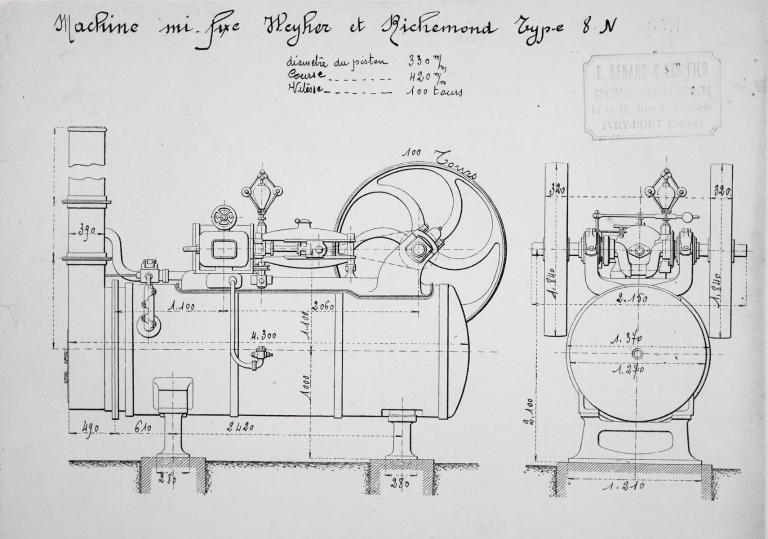 Machine mi-fixe Weyher et Richemond Type 8 N
diametre du piston 330 m/m
Course 420 m/m
Vitesse 100 tours
T. RENARD & SES FILS
IVRY-PORT (Seine)
100 Tours
390
320
320
1.840
1.840
2.150
1.100
2060
1.100
4.300
1.370
1.270
1000
2.100
490
610
2420
280
280
1.210